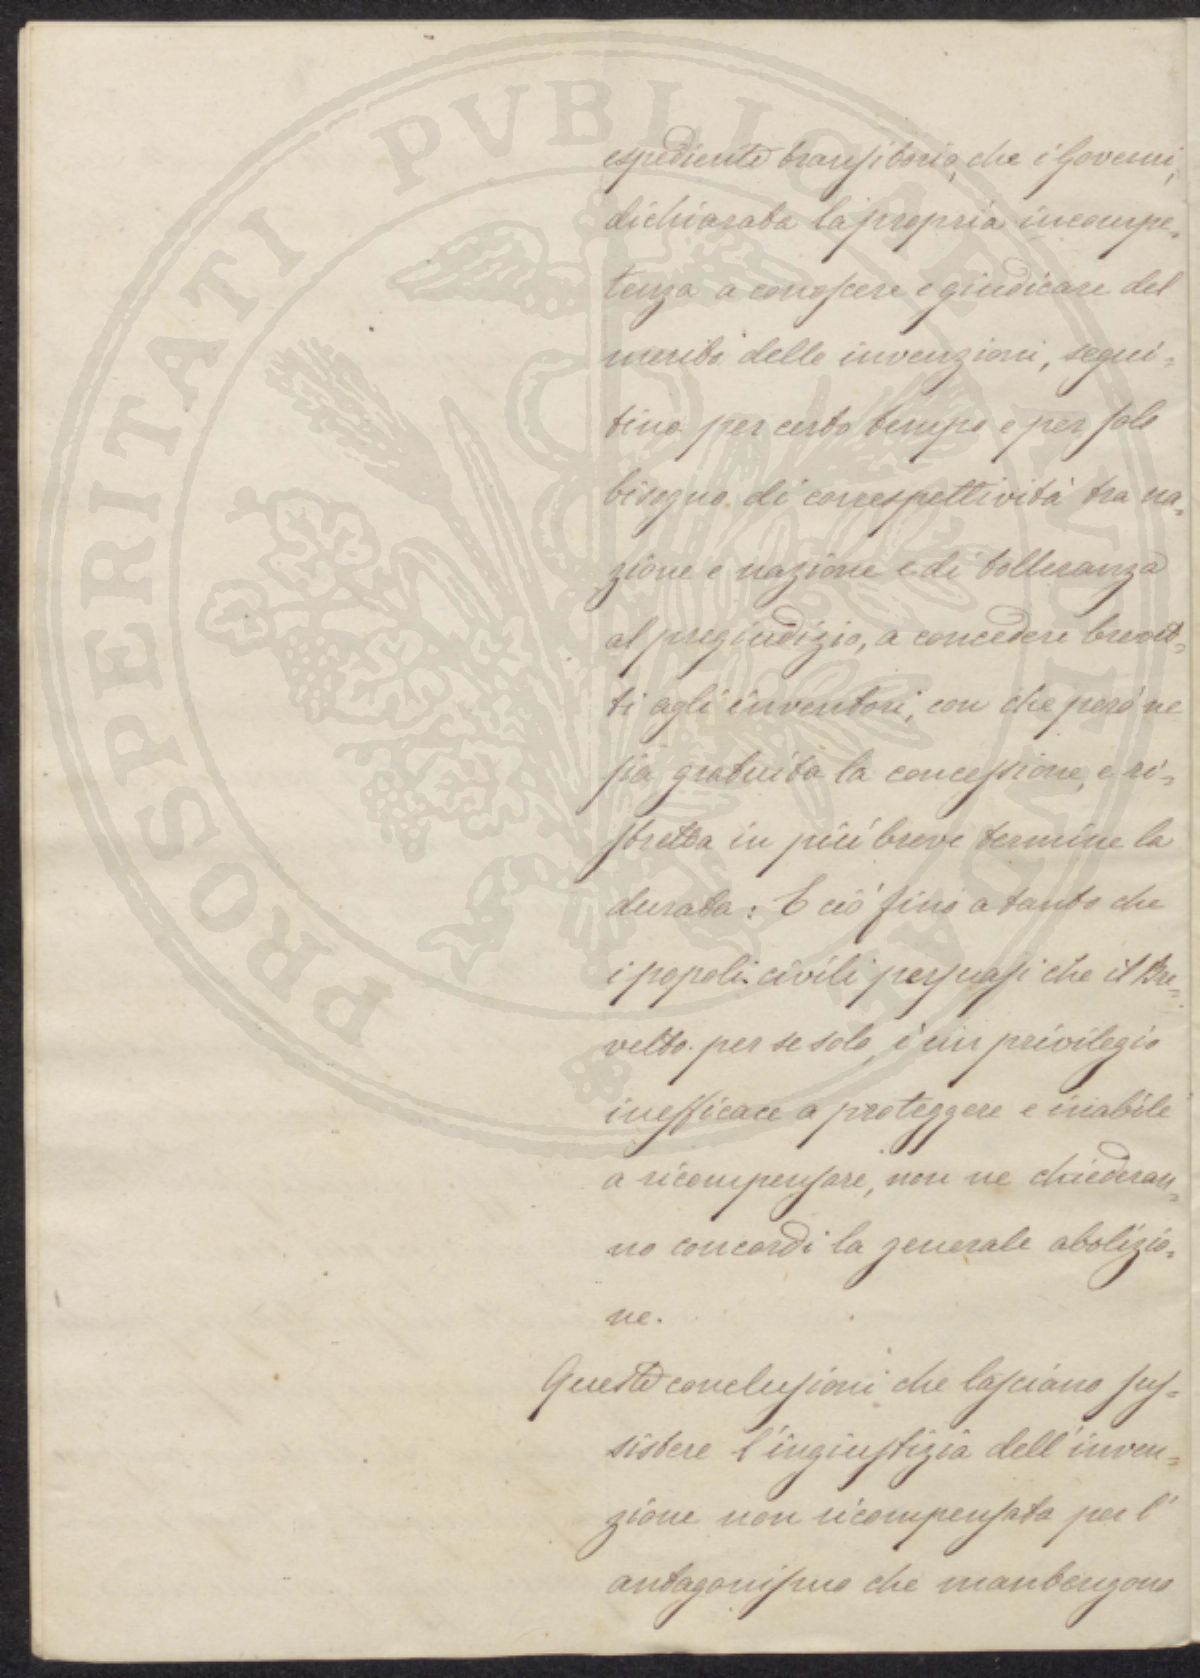 PROSPERITATI PVBLICAE AVGENDAE
espediente transitorio, che i Governi,
dichiarata la propria incompe=
tenza a conoscere e giudicare del
merito delle invenzioni, segui=
tino per certo tempo e per solo
bisogno di correspettività tra na=
zione e nazione e di tolleranza
al pregiudizio, a concedere brevet=
ti agli inventori, con che però ne
sia gratuita la concessione, e ri=
stretta in più breve termine la
durata: E ciò fino a tanto che
i popoli civili persuasi che il Bre=
vetto per se solo, è un privilegio
inefficace a proteggere e inabile
a ricompensare, non ne chiederan=
no concordi la generale abolizio=
ne.
Queste conclusioni che lasciano sus=
sistere l'ingiustizia dell'inven=
zione non ricompensata per l'
antagonismo che mantengono